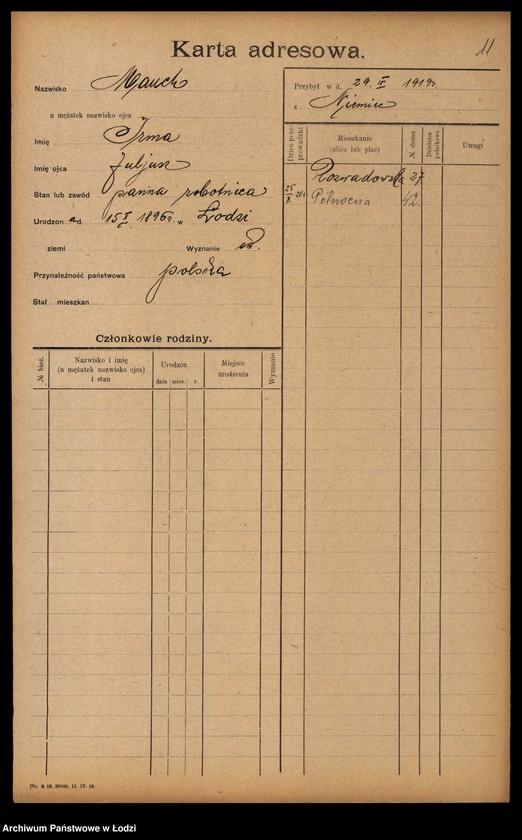 Karta adresowa.
11
Nazwisko Mauch
u mężatek nazwisko ojca
Imię Irma
Imię ojca Juljusz
Stan lub zawód panna robotnica
Urodzon a d. 15 X 1896 r. w Łodzi
ziemi Wyznanie ew.
Przynależność państwowa polska
Stał. mieszkan
Przybył w d. 29. IV 1919 r.
z Niemiec
Dzień przeprowadzki
Mieszkanie (ulica lub plac)
№ domu
Dzielnica podatkowa
Uwagi
Rozwadowska 27
25/X 20r. Północna 42
Członkowie rodziny.
№ bież.
Nazwisko i imię
(u mężatek nazwisko ojca)
i stan
Urodzon
dnia mies. r.
Miejsce
urodzenia
Wyznanie
Archiwum Państwowe w Łodzi